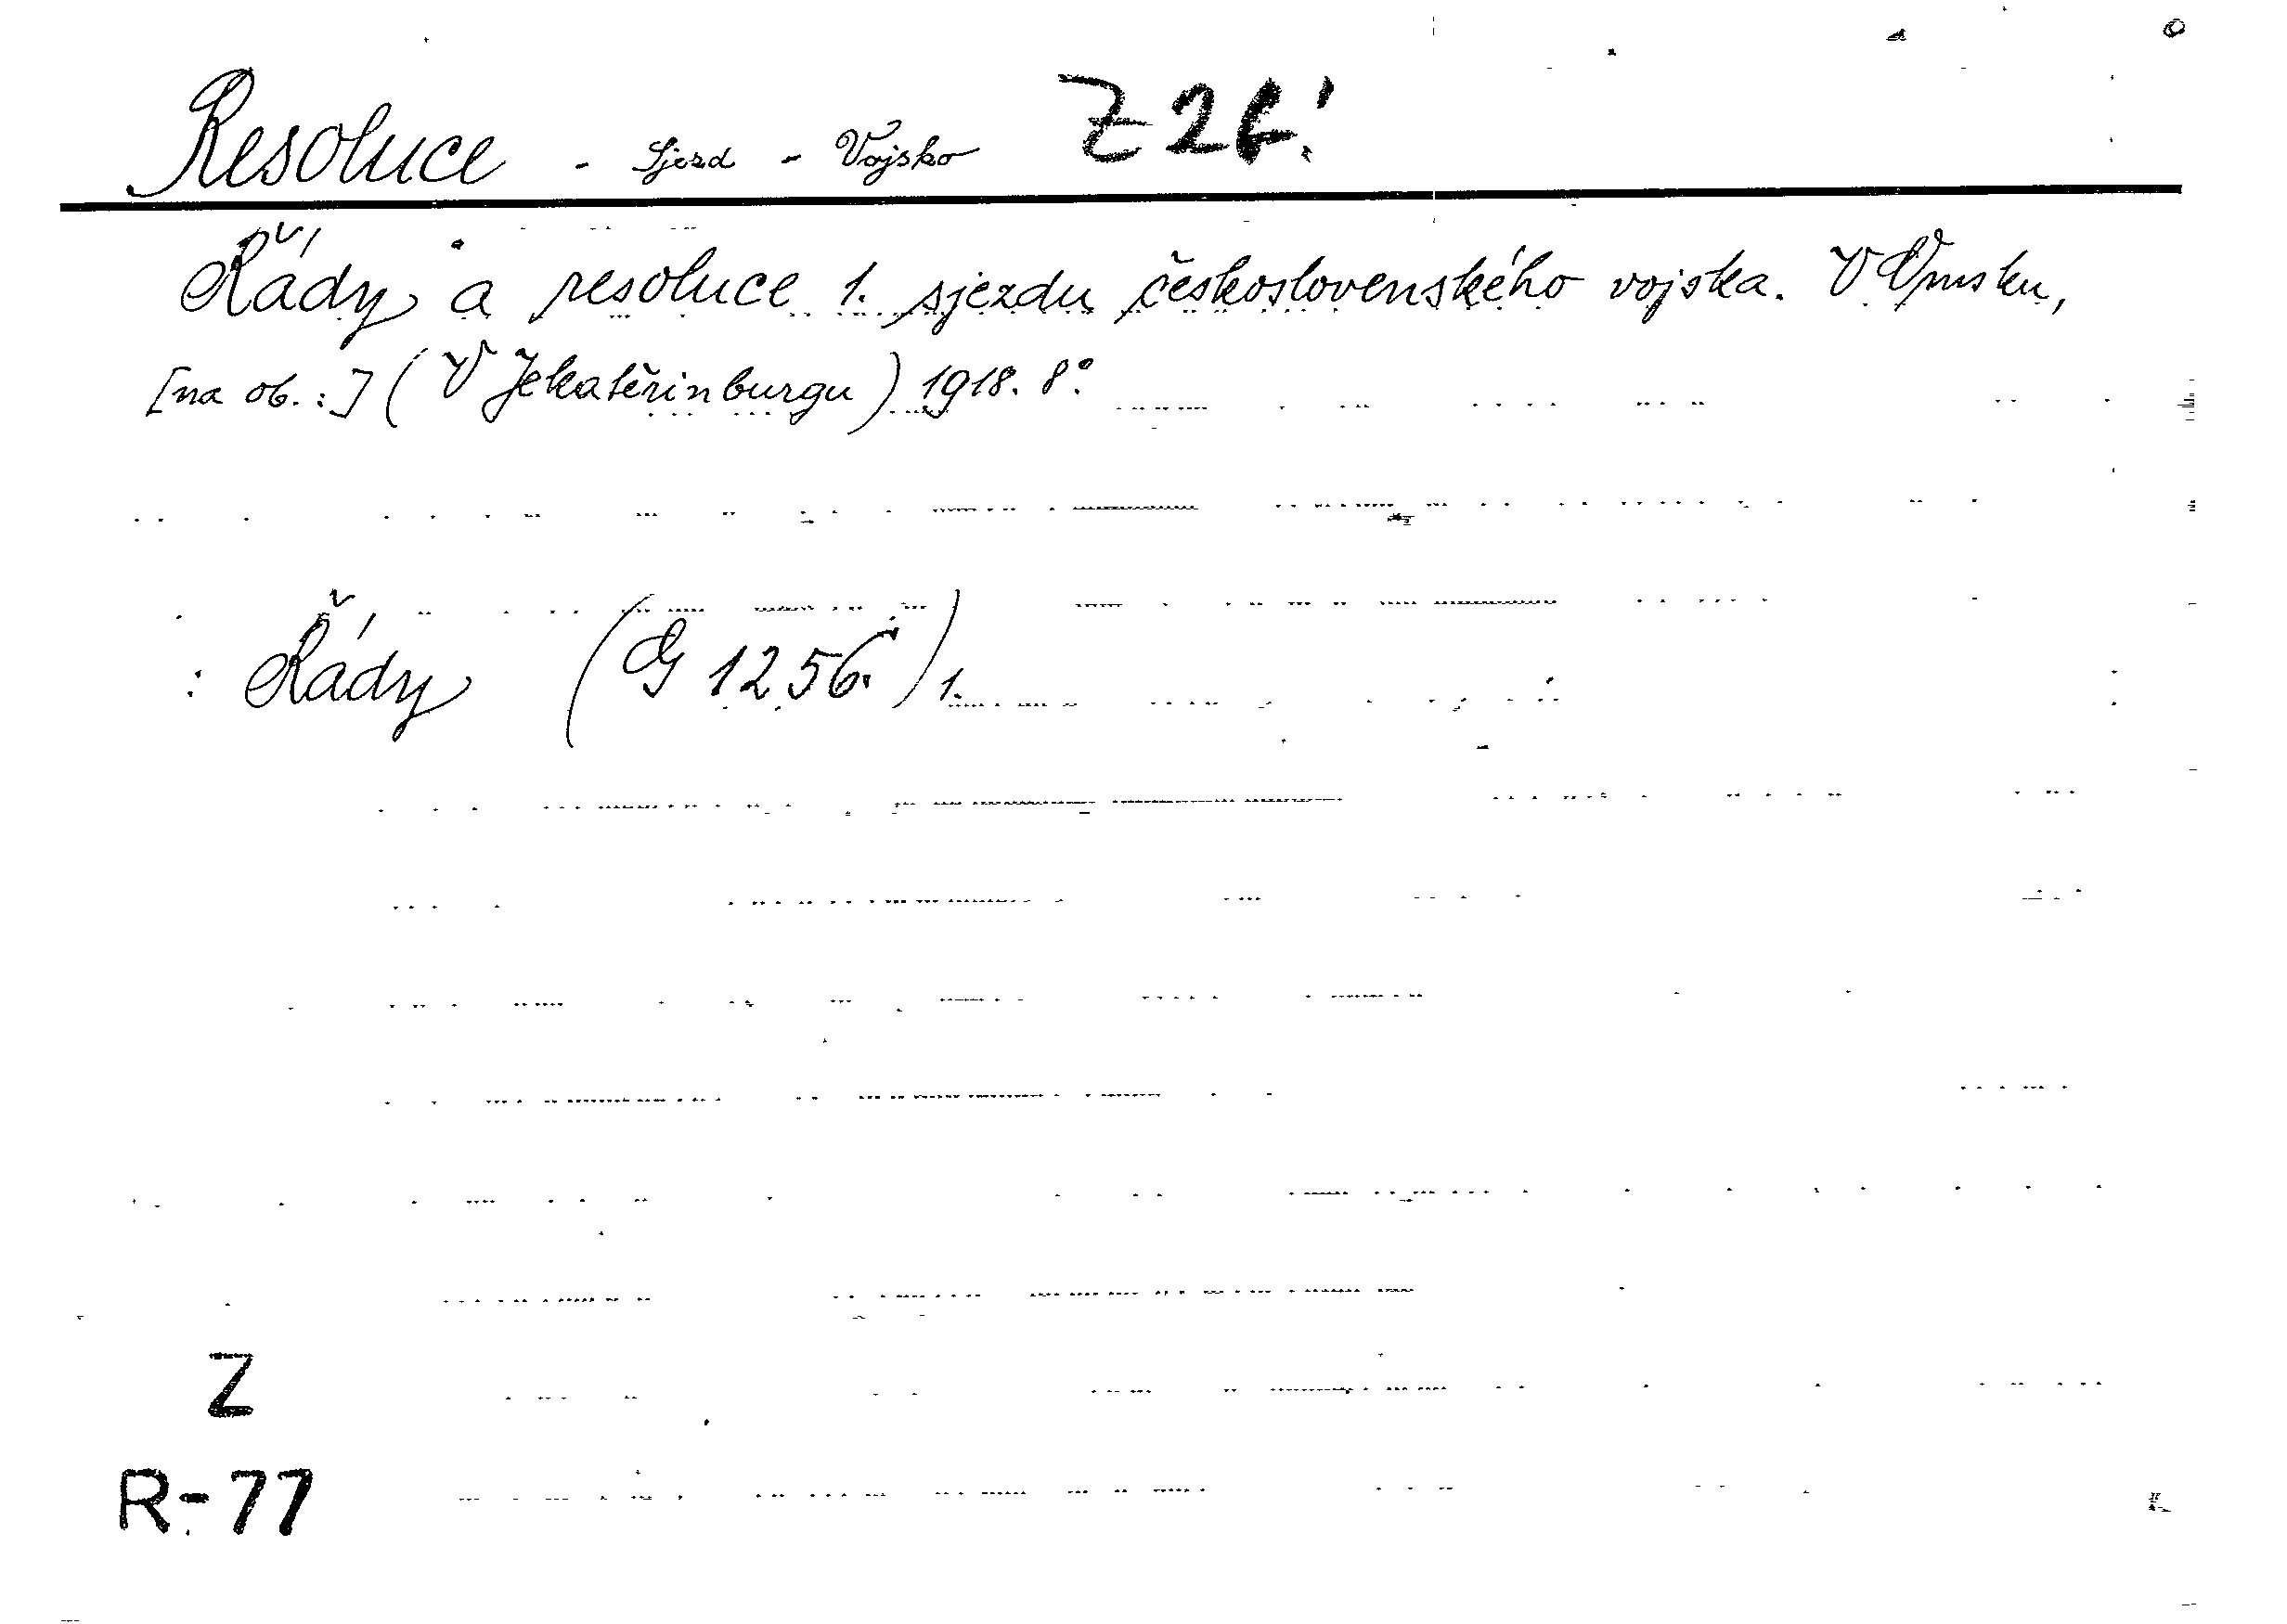 Resoluce - Sjezd - Vojsko Z 26!
Řády a resoluce 1. sjezdu československého vojska. V Omsku,
[na ob.:] (V Jekatěrinburgu) 1918. 8°.
: Řády (G 1256.) 1.
Z
R-77